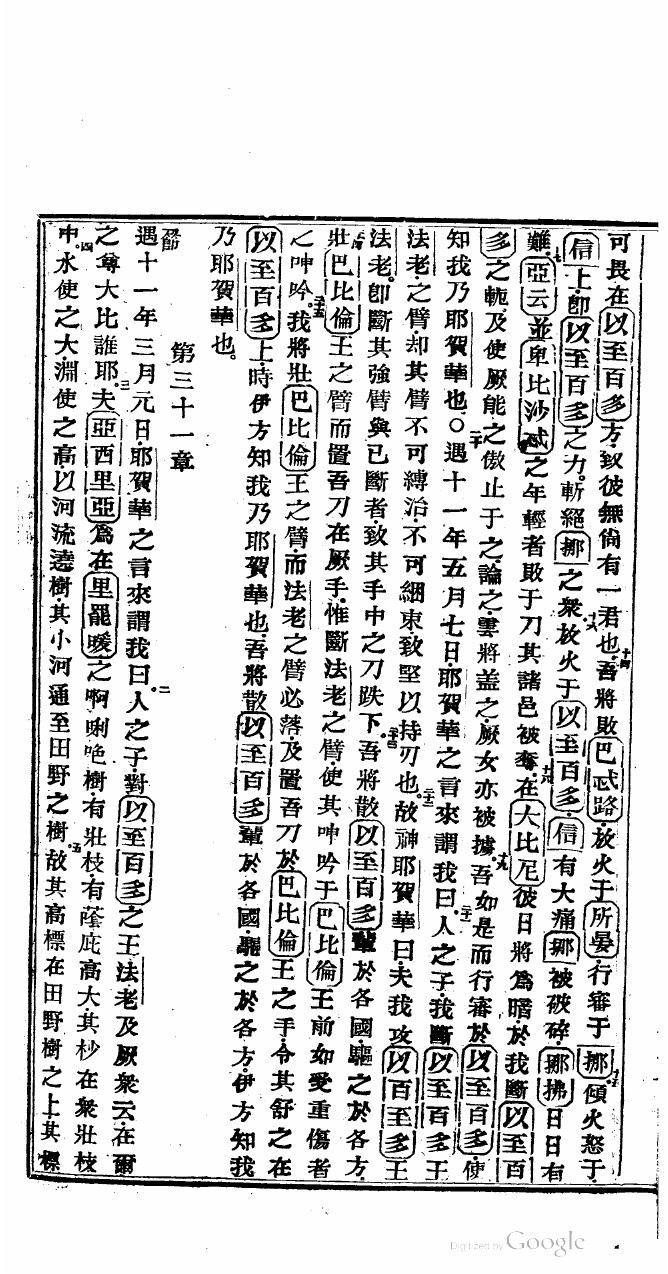 可畏在以至百多方致彼無尙有一君也十四吾將敗巴忒路放火于所晏行審于挪十五傾火怒于
信上卽以至百多之力斬絕挪之衆十六放火于以至百多信有大痛挪被破碎挪拂日日有
難十七亞云並卑比沙忒之年輕者敗于刀其諸邑被奪十八在大比尼彼日將爲暗於我斷以至百
多之軛及使厥能之傲止于之論之雲將盖之厥女亦被擄十九吾如是而行審於以至百多使
知我乃耶賀華也〇二十遇十一年五月七日耶賀華之言來謂我曰二十一人之子我斷以至百多王
法老之臂却其臂不可縛治不可綑束致堅以持刃也二十二故神耶賀華曰夫我攻以百至多王
法老卽斷其強臂與已斷者致其手中之刀跌下二十三吾將散以至百多輩於各國驅之於各方
二十四壯巴比倫王之臂而置吾刀在厥手惟斷法老之臂使其呻吟于巴比倫王前如受重傷者
之呻吟二十五我將壯巴比倫王之臂而法老之臂必落及置吾刀於巴比倫王之手令其舒之在
以至百多上時伊方知我乃耶賀華也吾將散以至百多輩於各國驅之於各方伊方知我
乃耶賀華也
第三十一章
一節遇十一年三月元日耶賀華之言來謂我曰二人之子對以至百多之王法老及厥衆云在爾
之尊大比誰耶三夫亞西里亞爲在里罷暖之啊唎𠯿樹有壯枝有蔭庇高大其杪在衆壯枝
中四水使之大淵使之高以河流遶樹其小河通至田野之樹五故其高標在田野樹之上其標
Digitized by Google